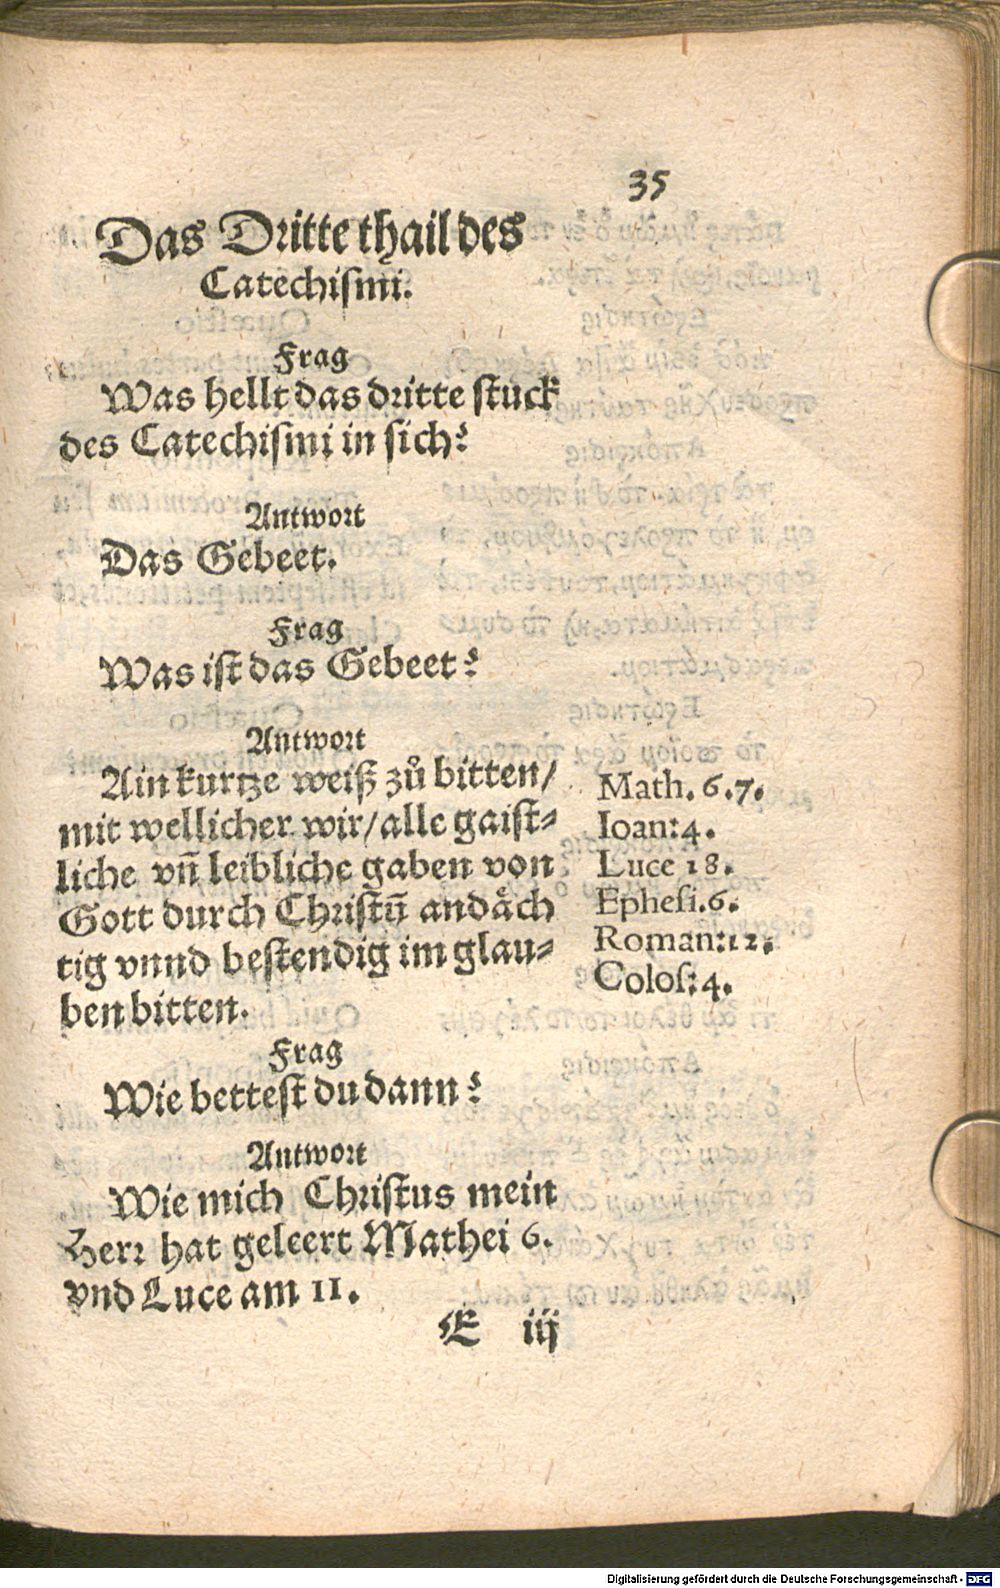 35
Das Dritte thail des
Catechiſmi.
Frag
Was hellt das dritte ſtuck
des Catechiſmi in ſich?
Antwort
Das Gebeet.
Frag
Was iſt das Gebeet?
Antwort
Ain kurtze weiß zů bitten/
mit wellicher wir/alle gaiſt⸗
liche vñ leibliche gaben von
Gott durch Chriſtū andåch
tig vnnd beſtendig im glau⸗
ben bitten.
Math. 6.7.
Ioan:4.
Luce 18.
Epheſi.6.
Roman:12.
Coloſ:4.
Frag
Wie betteſt du dann?
Antwort
Wie mich Chriſtus mein
Herr hat geleert Mathei 6.
vnd Luce am 11.
E iij
Digitalisierung gefördert durch die Deutsche Forschungsgemeinschaft - DFG